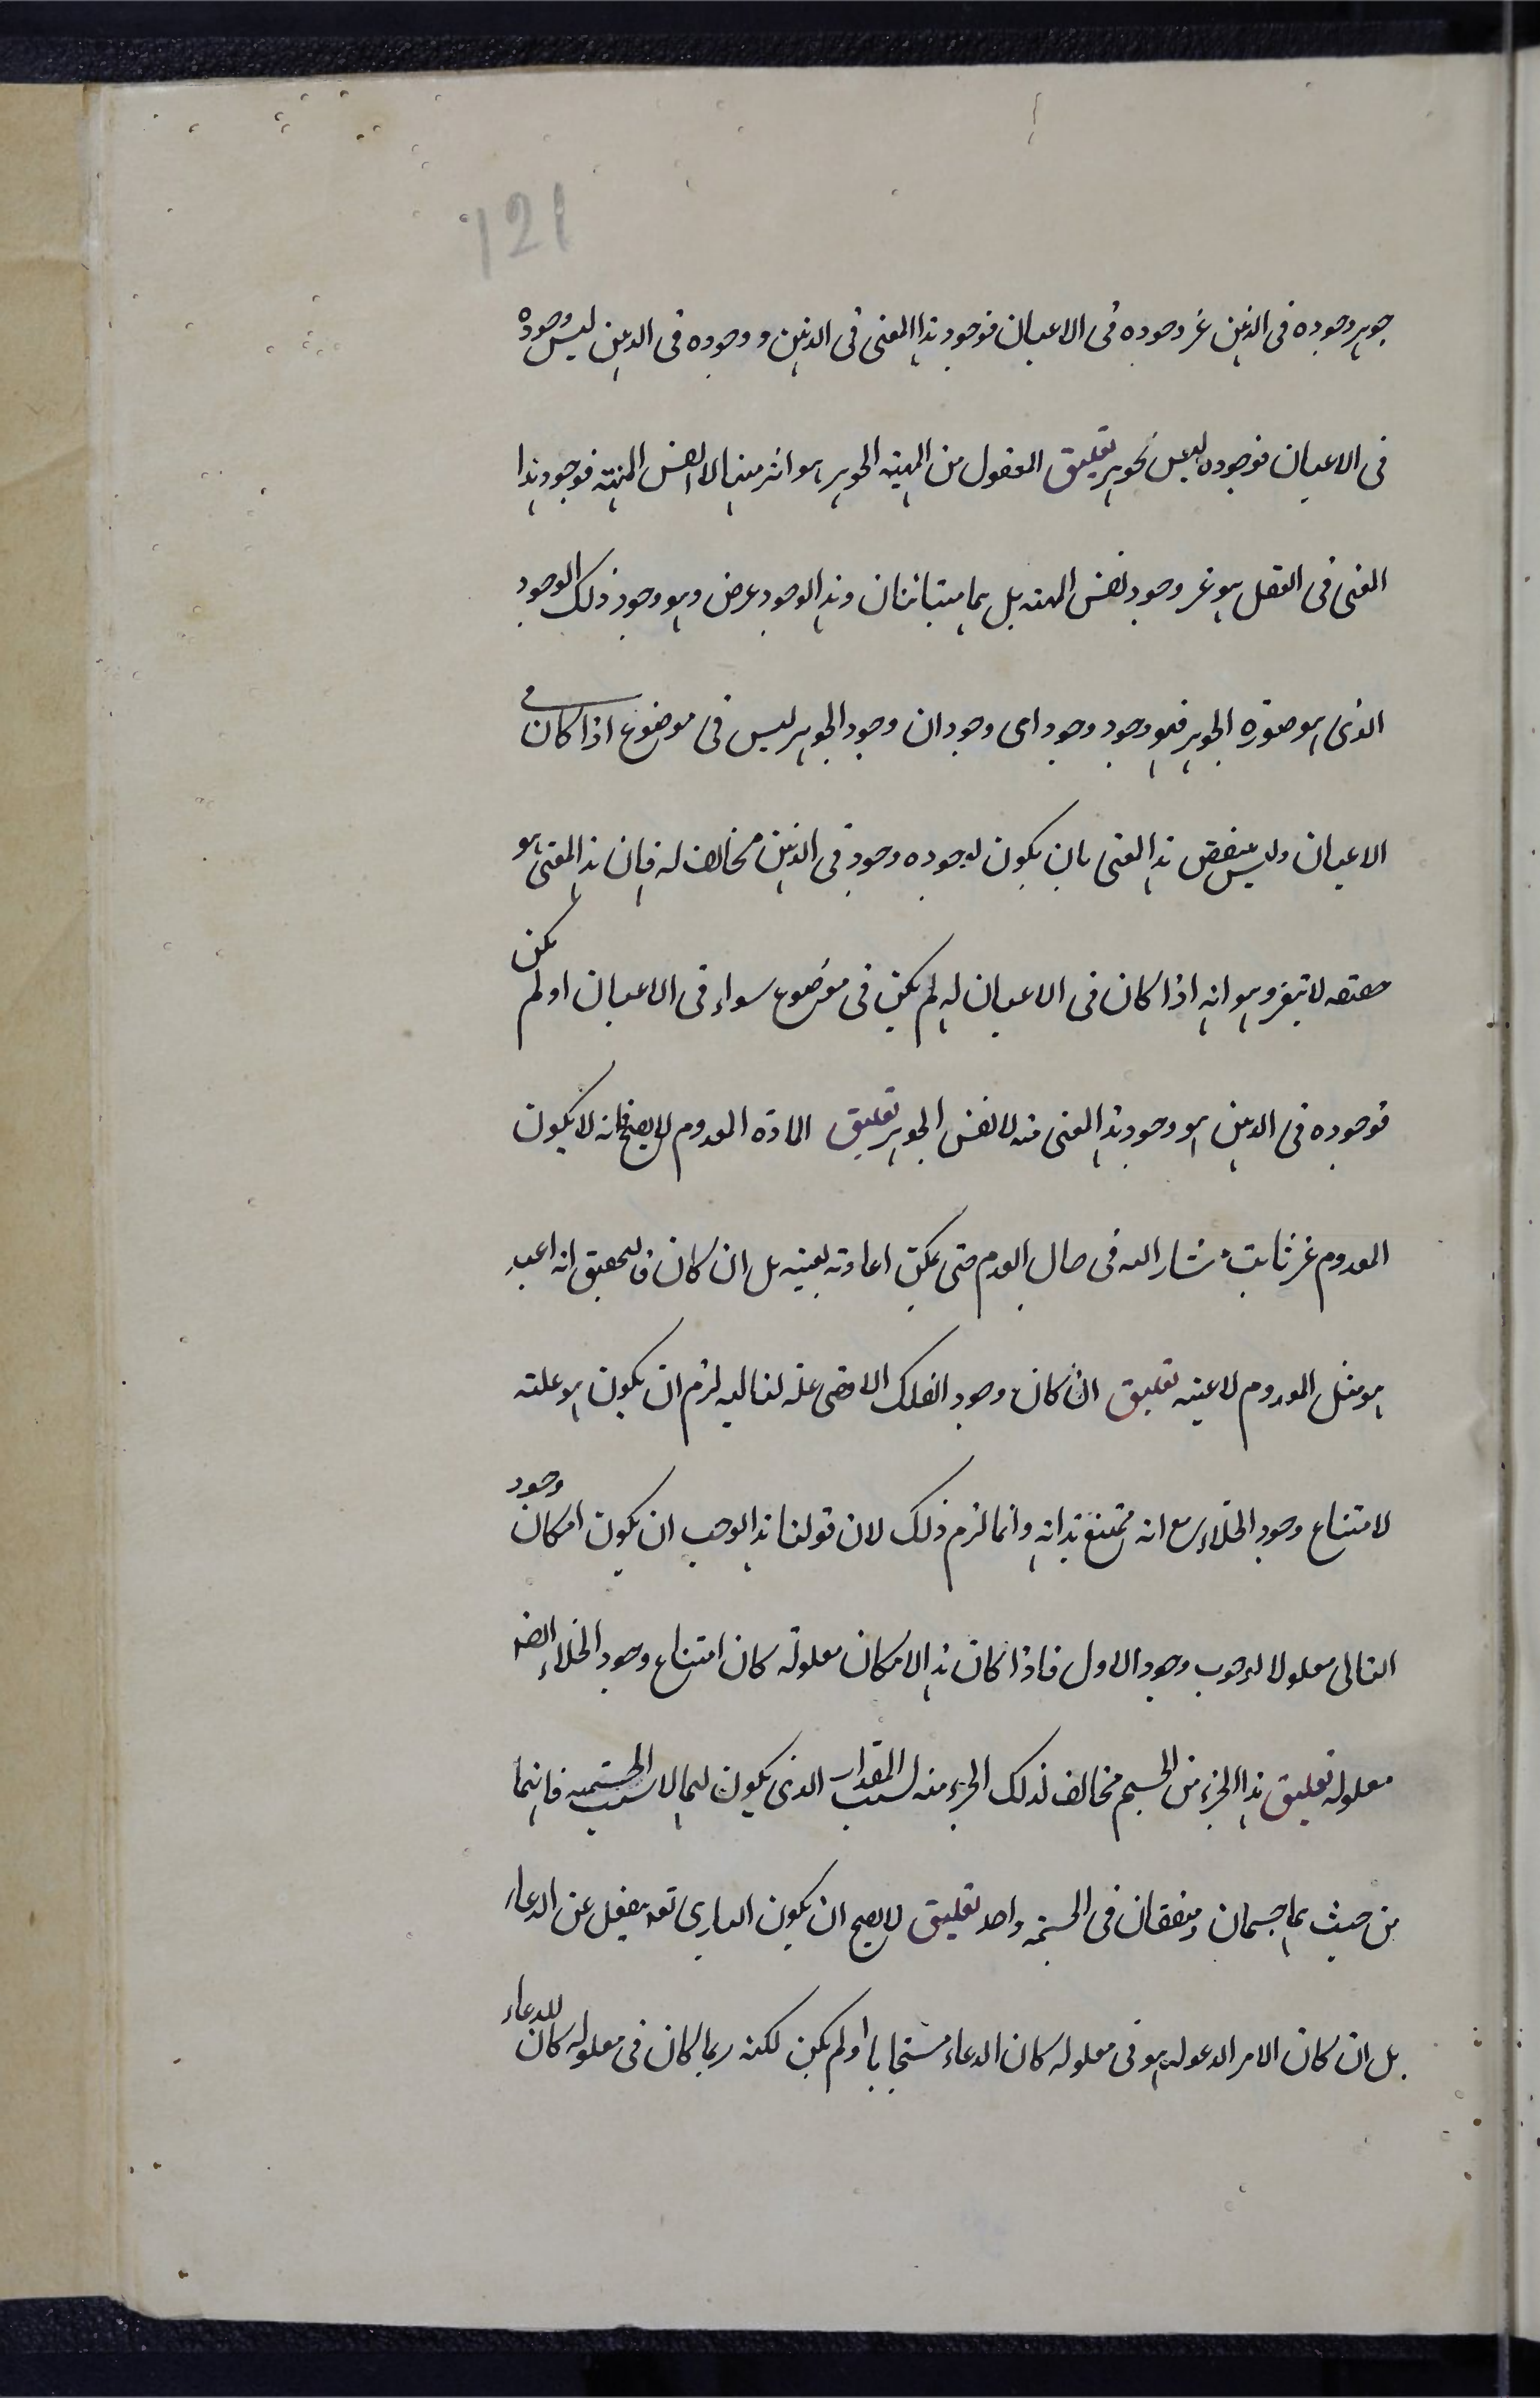 121
جوهر وجوده فى الذهن غير وجوده فى الاعيان فوجود هذا المعنى فى الذهن ووجوده فى الذهن ليس وجوده
فى الاعيان فوجوده ليس بجوهر تعليق المعقول من المهية الجوهر هو اثر منها لا نفس المهية فوجود هذا
المعنى فى العقل هو غير وجود نفس المهية بل هما متباينان وهذا الوجود عرض وهو وجود ذلك الوجود
الذى هو صورة الجوهر فهو وجود وجود اى وجودان وجود الجوهر ليس فى موضوع اذا كان فى
الاعيان وليس ينقض هذا المعنى بان يكون لوجوده وجود فى الذهن مخالف له فان هذا المعنى هو
حقيقته لا تتغير وهو انه اذا كان فى الاعيان له لم يكن فى موضوع سواء فى الاعيان او لم يكن
فوجوده فى الذهن هو وجود هذا المعنى منه لا نفس الجوهر تعليق المادة المعدوم لا يصح فانه لا يكون
المعدوم غير ثابت مشار اليه فى حال العدم حتى يمكن اعادته بعينه بل ان كان فالتحقيق انه اعيد
هو مثل المعدوم لا عينه تعليق ان كان وجود الفلك الاقصى علة لتاليه لزم ان يكون هو علته
لامتناع وجود الخلاء مع انه ممتنع بذاته وانما لزم ذلك لان قولنا هذا يوجب ان يكون امكان وجود
التالى معلولا لوجوب وجود الاول فاذا كان هذا الامكان معلوله كان امتناع وجود الخلاء ايضا
معلوله تعليق هذا الجزء من الجسم مخالف لذلك الجزء منه لسبب المقدار الذى يكون لهما لا بسبب الجسمية فانهما
من حيث هما جسمان ومتفقان فى الجسمية واحد تعليق لا يصح ان يكون البارى تعه ينفعل عن الدعاء
بل ان كان الامر المدعو له هو فى معلوله كان الدعاء مستجابا او لم يكن لكنه ربما كان فى معلوله كان للدعاء